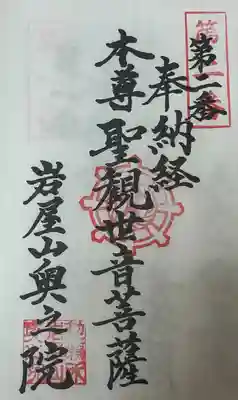 第二番
奉納経
本尊聖観世音菩薩
岩屋山奥之院